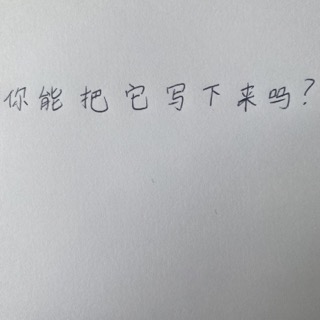 你能把它写下来吗?